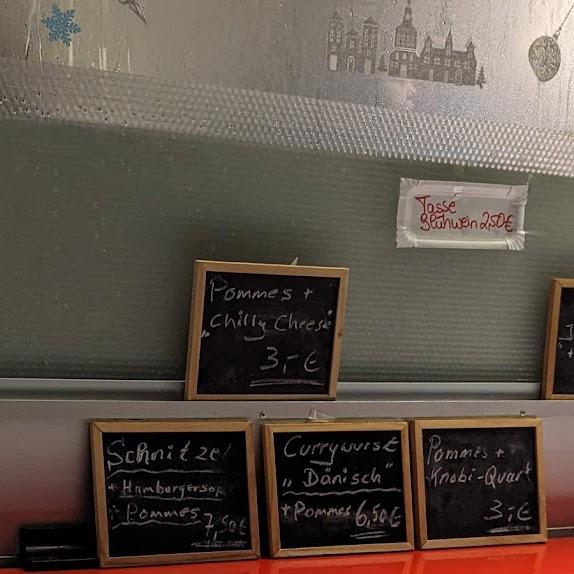 Tasse
Glühwein 2,50€
Pommes +
„Chilly Cheese"
3,-€
Schnitzel
+ Hamburgersoß
+ Pommes 7,50€
Currywurst
„Dänisch"
+ Pommes 6,50€
Pommes +
Knobi-Quark
3,-€